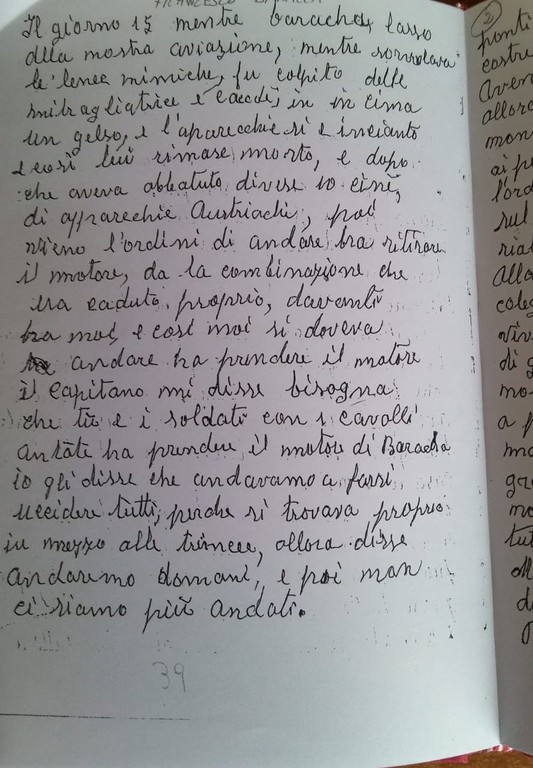 FRANCESCO
Il giorno 15 mentre baracha, lasso
della nostra aviazione, mentre sorvolava
le lenee nimiche, fu colpito delle
mitragliatrice e caeddi, in in cima
un gelso, e l'aparecchie si e inciantò
e così lui rimase morto, e dopo
che aveva abbatuto diverse
di apparecchie Austriachi, poi
vieno l'ordini di andare ha ritirare
il motore, da la combinazione che
era caduto proprio, davanti
ha moi, e cosi moi si doveva
andare ha prendere il motore
il capitano mi disse bisogna
che tu e i soldati con i cavalli
antate ha prendere il motore di Baracha
io gli disse che andavamo a farsi
uccidere tutti, perche si trovava proprio
in mezzo alle trincee, allora disse
andaremo domani, e poi man
ci siamo più andati.
39
2
ponti
costre
Aven
allora
mon
ai pe
l'ord
sul
ria
Allo
coleg
viv
di g
mo
a p
ma
gra
mo
tut